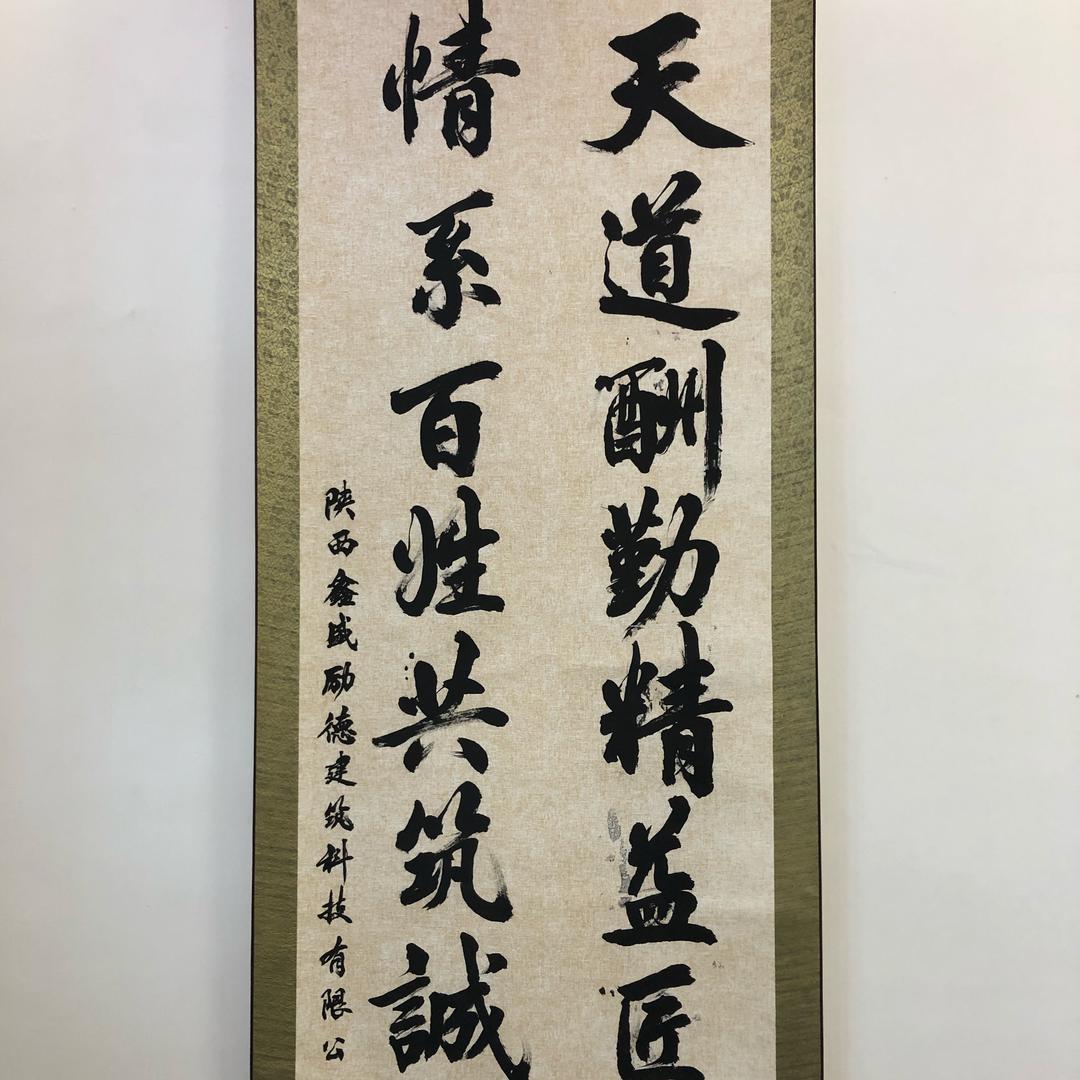 天道酬勤精益匠
情系百姓共筑誠
陕西鑫盛励德建筑科技有限公